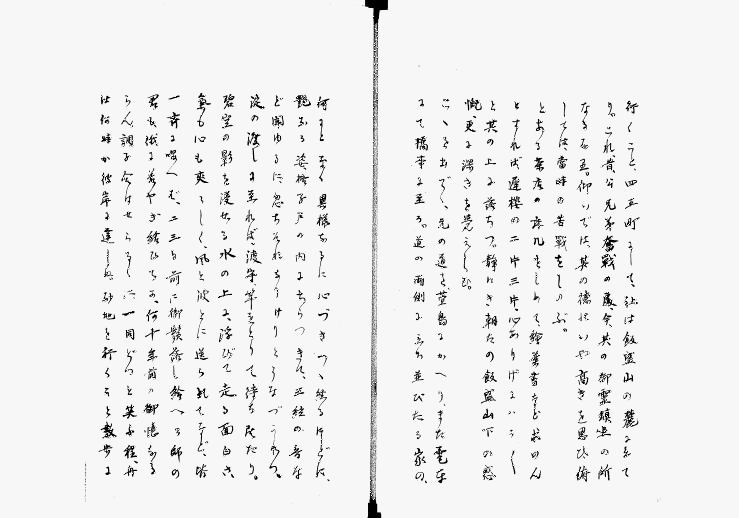 行くこと、四五町にして、社は飯盛山の麓にありて
り。これ昔公兄弟奮戦の處、今、其の御霊鎮座の所
なる。御いでは、其の徳のいや高きを思ひ、俯
しては、當時の苦戦をしのぶ。
とある茶店の床几をしめて、繪葉書など求めん
とすれば、遅櫻の二片三片、心ありげに
と其の上に落ちつ。静けき朝たの飯盛山下の感
慨、更に深きを覚えしむ。
こゝを出でゝ、元の道を、萱島にかへり、また電車
にて橋本に至る。道の両側に立ち並びたる家の、
何となく異様なるに心づきつゝ
艶なる姿、格子戸の内に立ちつ 三絃の音な
ど聞ゆるに、忽ちそれなりけりとうなづかれつ。
淀の渡しに至れば、渡守竿をとりて待ち居たり。
碧空の影を浸せる水の上に、浮びて走る面白さ、
氣も心も爽々しく、風と波とに送られてなど、皆
一齊に唱へば、二三日前に御髪落し給へる師の
君も、機に若やぎ給ひて、何十年前の御憶なる
らん、調子合はせらるゝに、一同どつと笑ふ程、舟
は何時か彼岸に達しぬ。砂地を行くこと数歩に